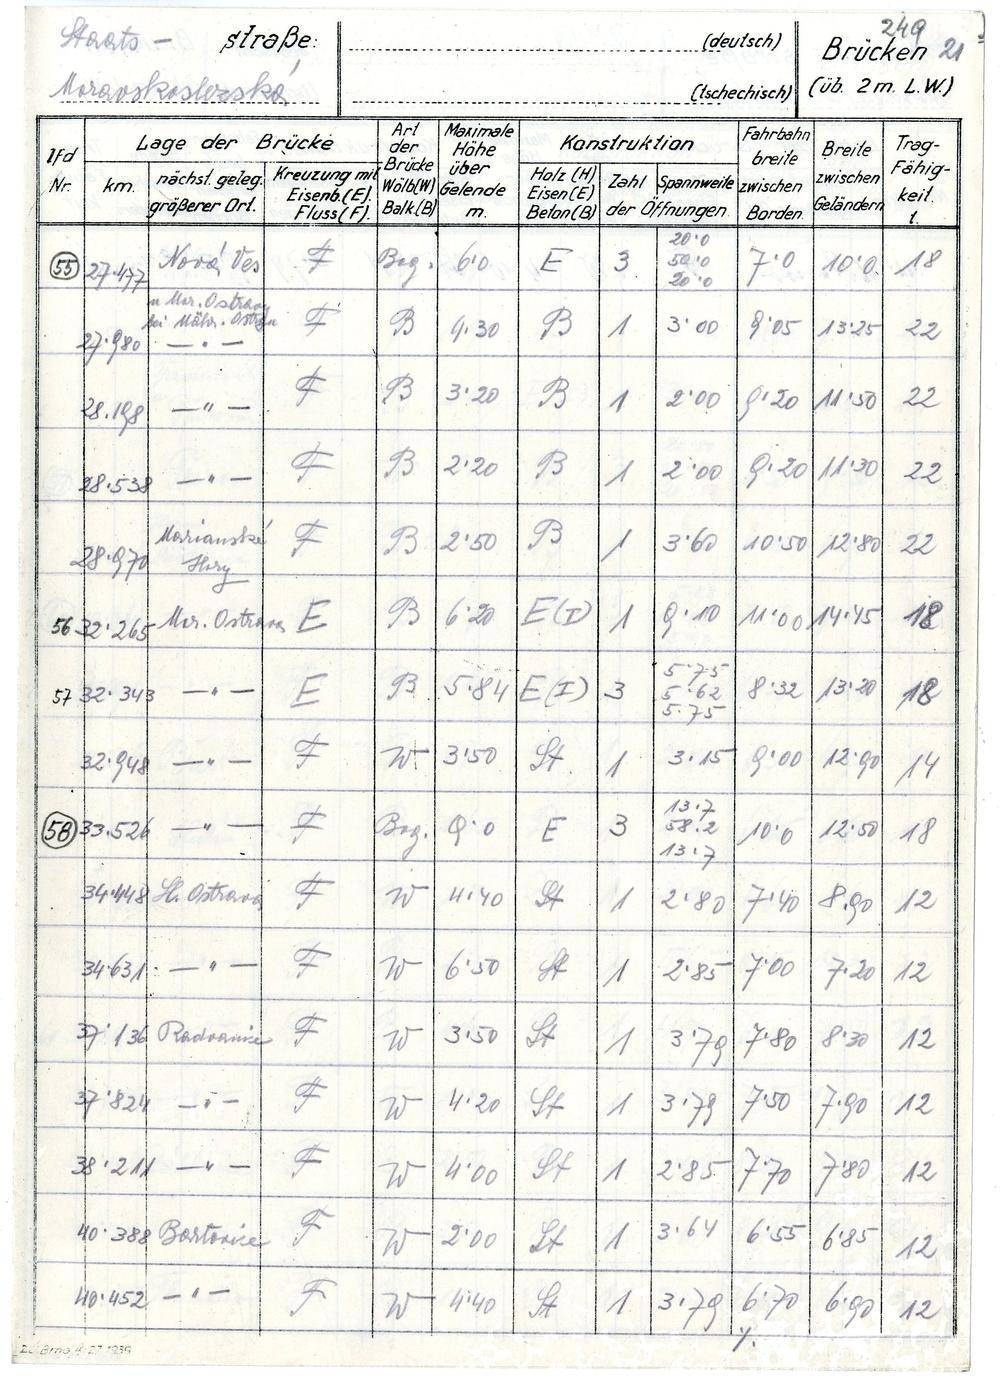 249
Staats - straße: (deutsch) Brücken 21
Moravskoslezská (tschechisch) (üb. 2 m. L.W.)
lfd Nr.
Lage der Brücke
km.
nächst. geleg. größerer Ort.
Kreuzung mit Eisenb.(E). Fluss(F).
Art der Brücke Wölb(W) Balk.(B)
Maximale Höhe über Gelende m.
Konstruktion
Holz (H) Eisen(E) Beton(B)
Zahl Spannweite
der Öffnungen.
Fahrbahn breite zwischen Borden.
Breite zwischen Geländern
Trag- Fähig- keit. t.
55 27·477 Nová Ves F Bog. 6·0 E 3 20·0 50·0 20·0 7·0 10·0 18
u Mor. Ostravy
bei Mähr. Ostrau
27·980 — " — F B 4·30 B 1 3·00 9·05 13·25 22
28.198 — " — F B 3·20 B 1 2·00 9·20 11·50 22
28·538 — " — F B 2·20 B 1 2·00 9·20 11·30 22
28·970 Marianské Hory F B 2·50 B 1 3·60 10·50 12·80 22
56 32·265 Mor. Ostrava E B 6·20 E(I) 1 9·10 11·00 14·45 18
57 32·343 — " — E B 5·84 E(I) 3 5·75 5·62 5·75 8·32 13·20 18
32·948 — " — F W 3·50 St 1 3·15 9·00 12·90 14
58 33.526 — " — F Bog. 9·0 E 3 13·7 58·2 13·7 10·0 12·50 18
34·448 Sl. Ostrava F W 4·40 St 1 2·80 7·40 8.90 12
34·631 — " — F W 6·50 St 1 2·85 7·00 7·20 12
37·136 Radvanice F W 3·50 St 1 3·79 7·80 8·30 12
37·824 — " — F W 4·20 St 1 3·79 7·50 7·90 12
38·211 — " — F W 4·00 St 1 2·85 7·70 7·80 12
40·388 Bartovice F W 2·00 St 1 3·64 6·55 6·85 12
40·452 — " — F W 4·40 St 1 3·79 6·70 6·90 12
./.